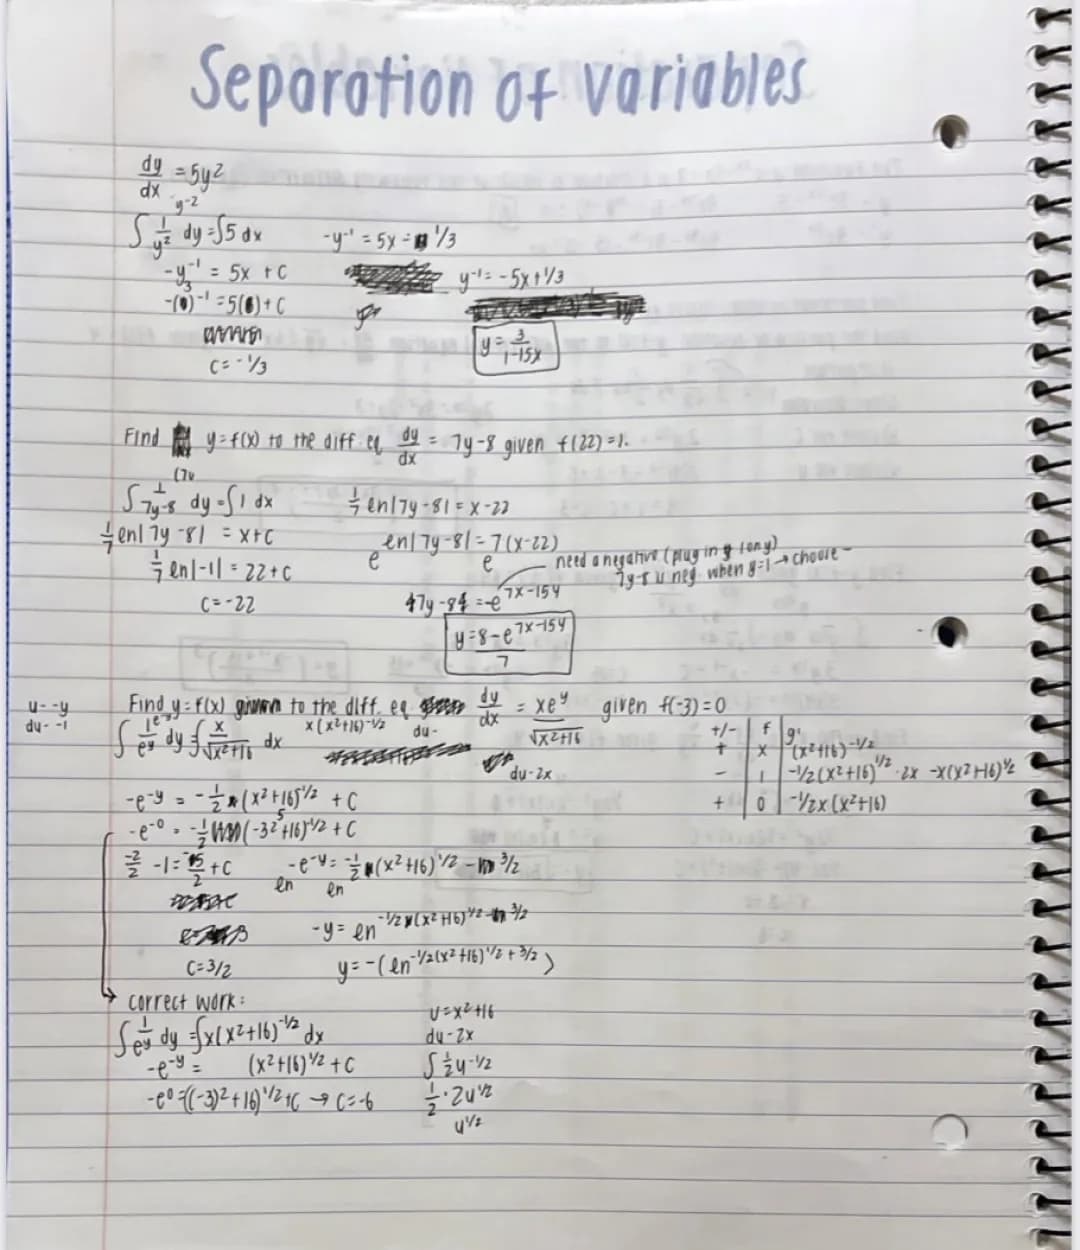 Separation of variables
dy/dx = 5y²
y-2
∫ 1/y² dy = ∫5 dx
-y⁻¹ = 5x + C
-(3)⁻¹ = 5(0) + C
C = -1/3
-y⁻¹ = 5x - 1/3
y⁻¹ = -5x + 1/3
y = 3/(1-15x)
Find y = f(x) to the diff. eq dy/dx = 7y-8 given f(22) = 1.
∫ 1/(7y-8) dy = ∫ 1 dx
1/7 en|7y-8| = x + C
1/7 en|-1| = 22 + C
C = -22
1/7 en|7y-8| = x-22
e^(en|7y-8|) = e^(7(x-22))
need a negative (plug in y
7y-8 is neg. when y=1 → choose -
7y-8 = -e^(7x-154)
y = (8-e^(7x-154))/7
u = -y
du = -1
Find y = f(x) given to the diff. eq dy/dx = xe^y/√(x²+16) given f(-3) = 0
∫ 1/e^y dy = ∫ x/√(x²+16) dx
x(x²+16)^(-1/2)
du-
du-2x
+/- f g'
+ x (x²+16)^(-1/2)
- 1 -1/2(x²+16)^(1/2) · 2x -x(x²+16)^(1/2)
+ 0 -1/2x(x²+16)
-e^(-y) = -1/2(x²+16)^(1/2) + C
-e^(-0) = -1/2(-3²+16)^(1/2) + C
-2/2 -1 = -5/2 + C
C = 3/2
-e^(-y) = -1/2(x²+16)^(1/2) - 3/2
en en
-y = en^(-1/2(x²+16)^(1/2) - 3/2)
y = -(en^(-1/2(x²+16)^(1/2) + 3/2))
correct work:
∫ 1/e^y dy = ∫x(x²+16)^(-1/2) dx
-e^(-y) = (x²+16)^(1/2) + C
-e⁰ = ((-3)²+16)^(1/2) + C → C = -6
u = x²+16
du-2x
∫ 1/2 u^(-1/2)
1/2 · 2u^(1/2)
u^(1/2)